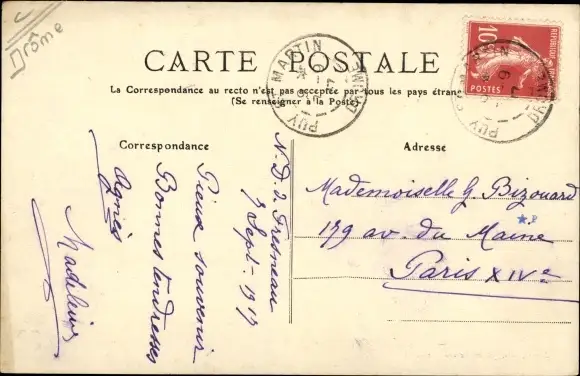 Drôme
CARTE POSTALE
La Correspondance au recto n'est pas acceptée par tous les pays étran
(Se renseigner à la Poste)
Correspondance
N.D. d. Fresneau
7 Sept - 1917
Pieux souvenir
Bonnes tendresses
Agnès
Madeleine
Adresse
Mademoiselle G. Bizouard
179 av. du Maine
Paris XIVe
PUY ST MARTIN
DRÔME
PUY ST MARTIN
DRÔME
10
POSTES